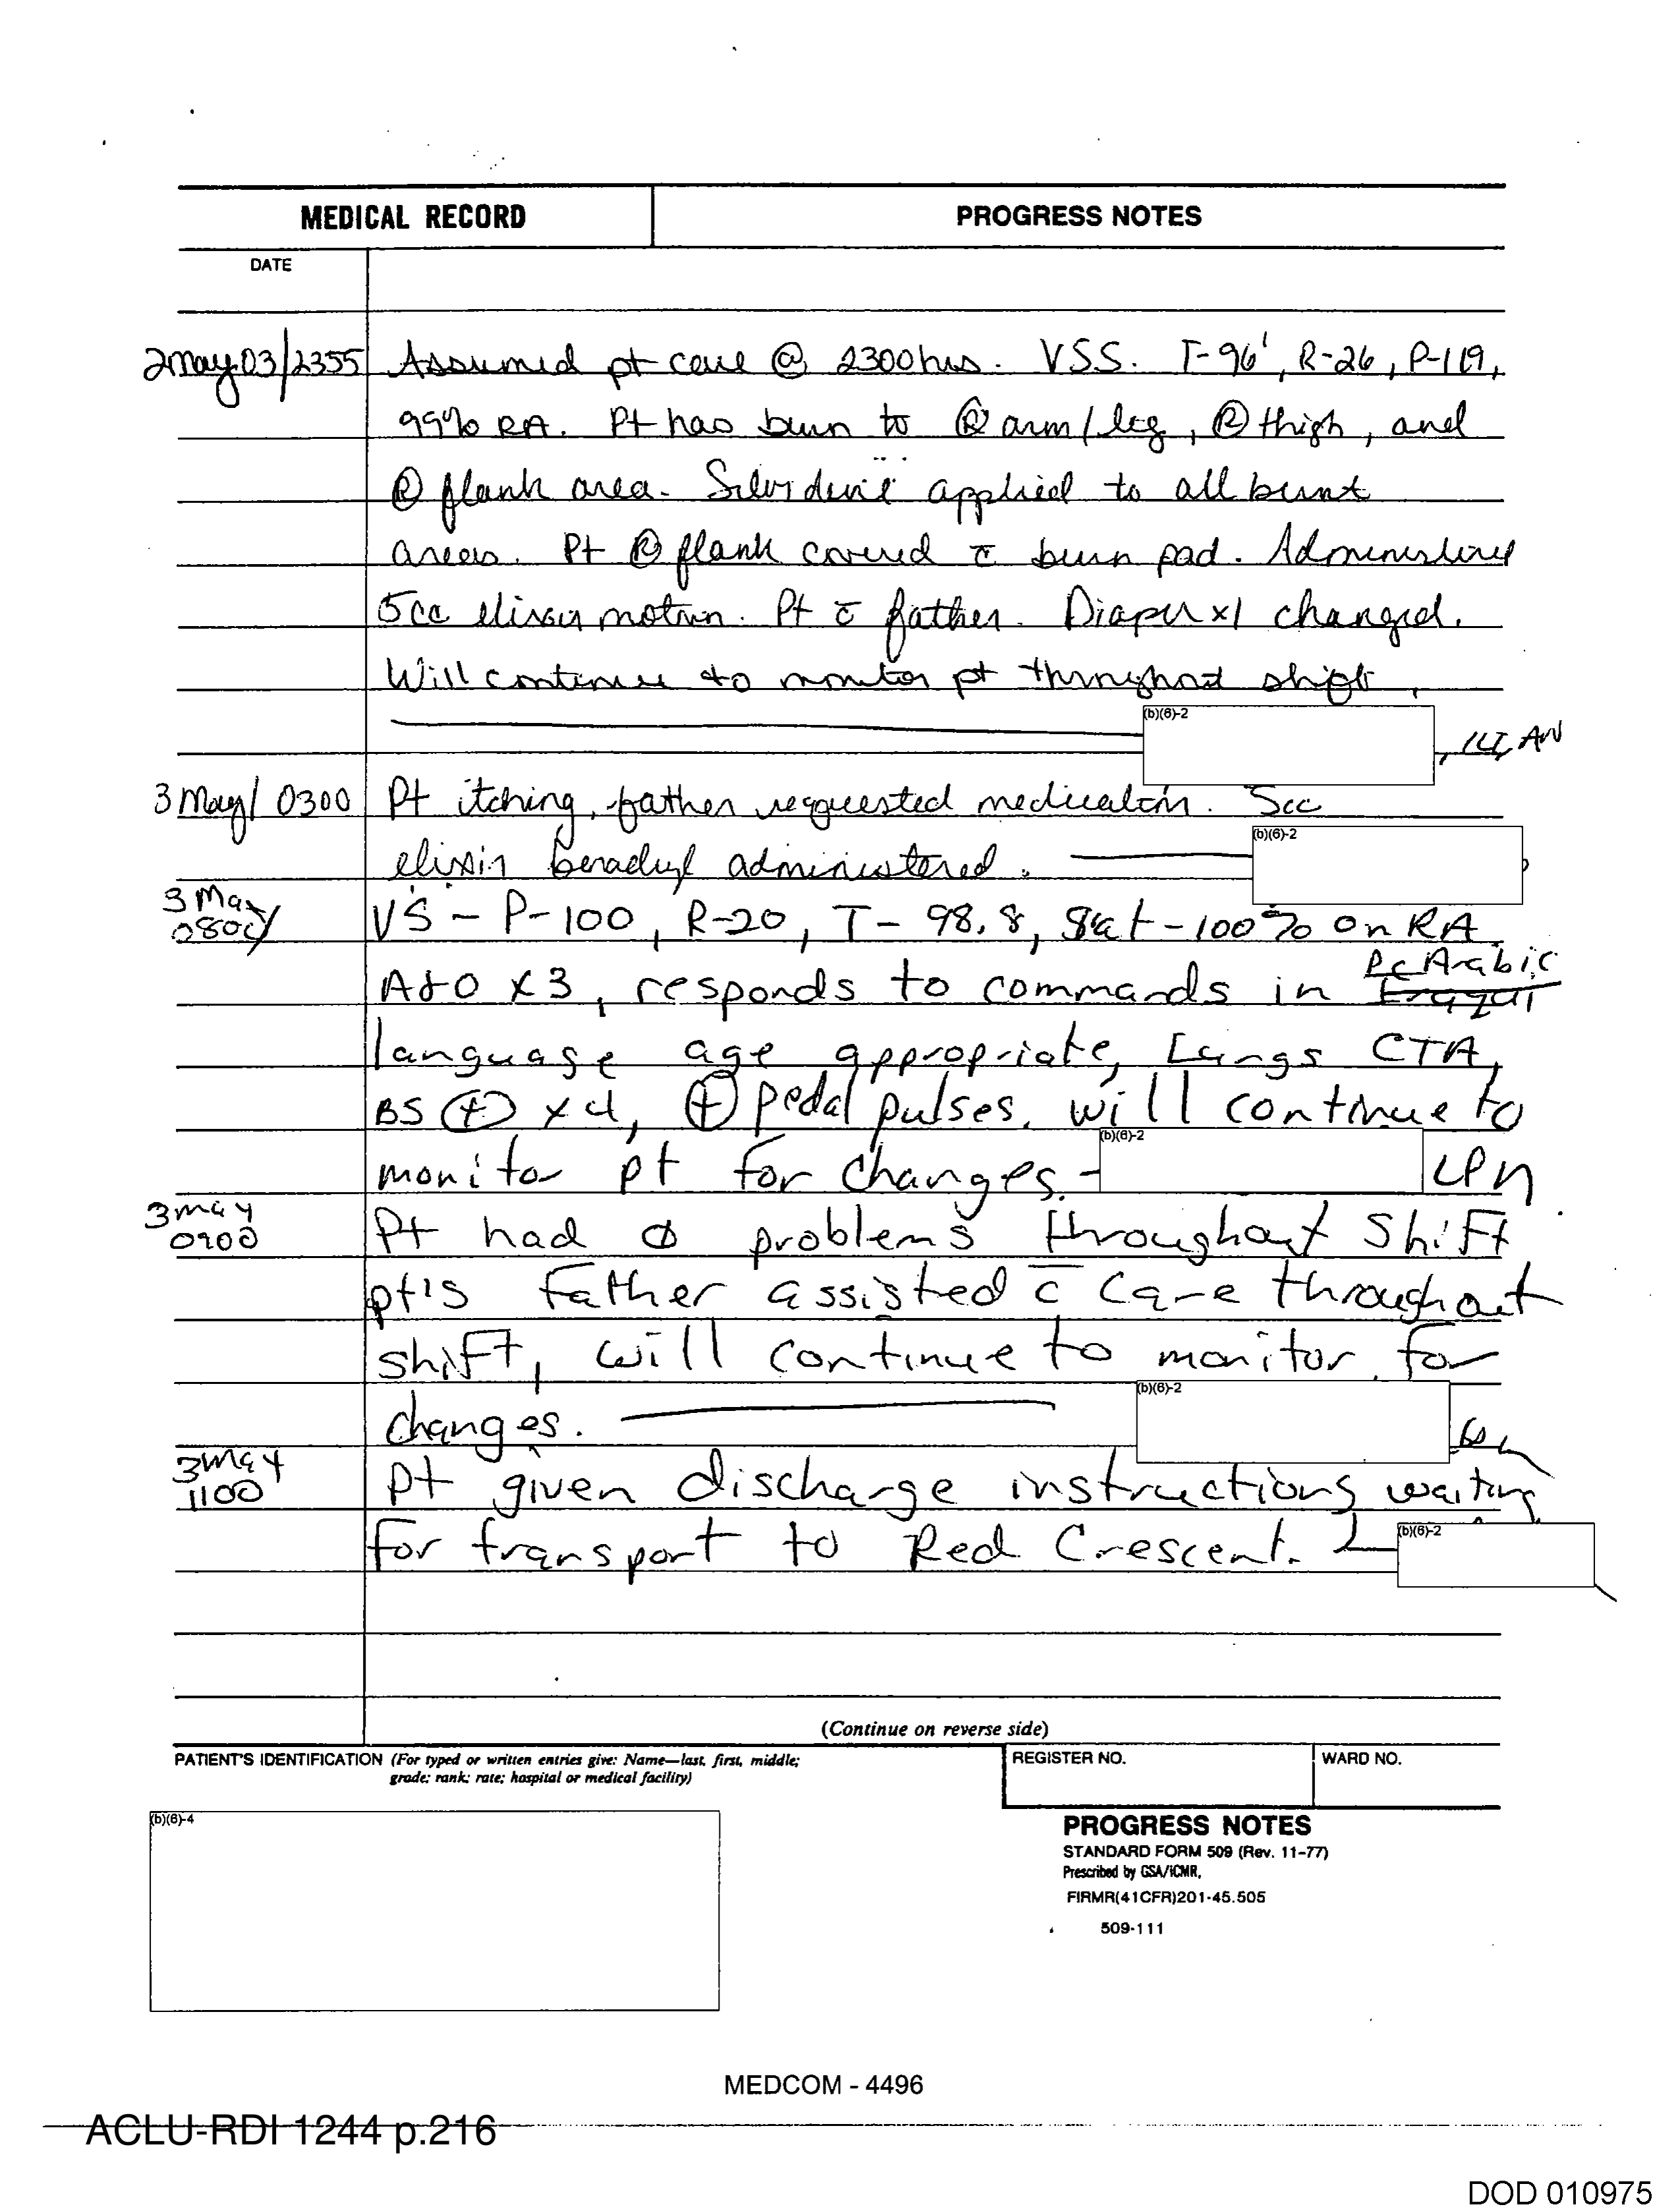 MEDICAL RECORD
PROGRESS NOTES
DATE
2May03/2355 Assumed pt care @ 2300hrs. VSS. T-96', R-26, P-119,
99% RA. Pt has burn to Ⓡ arm/leg, Ⓡ thigh, and
Ⓡ flank area. applied to all burnt
areas. Pt Ⓡ flank covered c̄ burn pad. Administered
5cc elixir motrin. Pt c̄ father. Diaper x1 changed.
Will continue to monitor pt throughout shift.
(b)(6)-2
, 1LT, AN
3 May/ 0300 Pt itching, father requested medication. 5cc
elixir benadryl administered.
(b)(6)-2
3 May 0800/ VS - P-100, R-20, T- 98.8, Sat-100% on RA
A&O x3, responds to commands in Arabic
language age appropriate, Lungs CTA,
BS ⊕ x4, ⊕ pedal pulses. will continue to
monitor pt for changes. -
(b)(6)-2
LPN
3 may 0900 Pt had ∅ problems throughout shift
pt's father assisted c̄ care throughout
shift, will continue to monitor for
changes.
(b)(6)-2
3 may 1100 Pt given discharge instructions waiting
for transport to Red Crescent.
(b)(6)-2
(Continue on reverse side)
PATIENT'S IDENTIFICATION (For typed or written entries give: Name—last, first, middle;
grade; rank; rate; hospital or medical facility)
REGISTER NO.
WARD NO.
(b)(6)-4
PROGRESS NOTES
STANDARD FORM 509 (Rev. 11-77)
Prescribed by GSA/ICMR,
FIRMR(41CFR)201-45.505
509-111
MEDCOM - 4496
ACLU-RDI 1244 p.216
DOD 010975